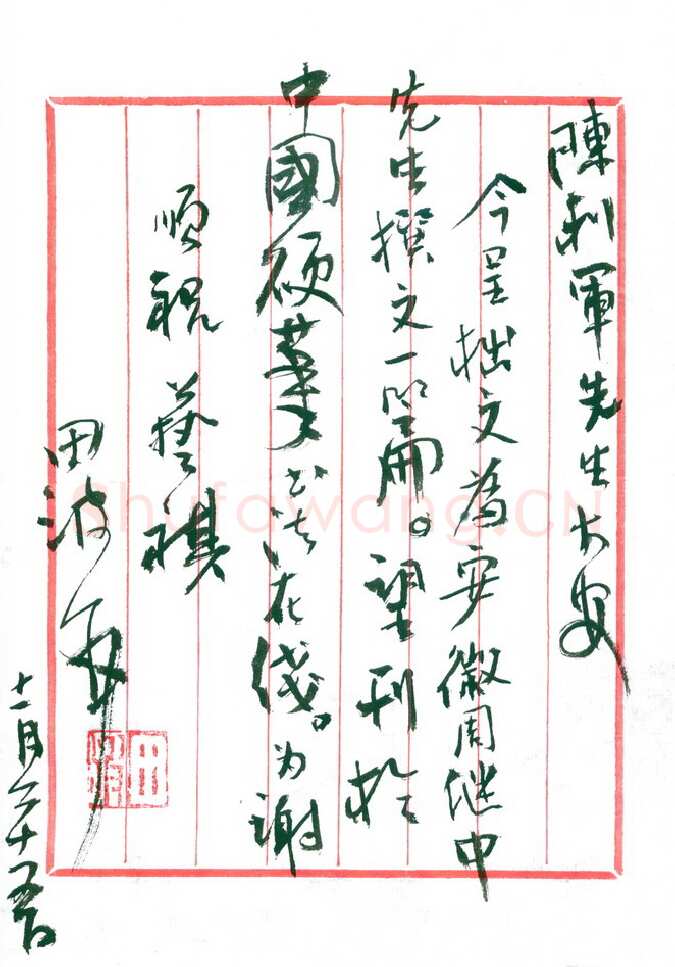 陳利軍先生大安
今呈拙文為安徽周继中
先生撰文一篇。望刊於
中國硬筆书法在线。为谢
順祝 藝祺
田波
十一月二十五日
田
Shufawang.CN